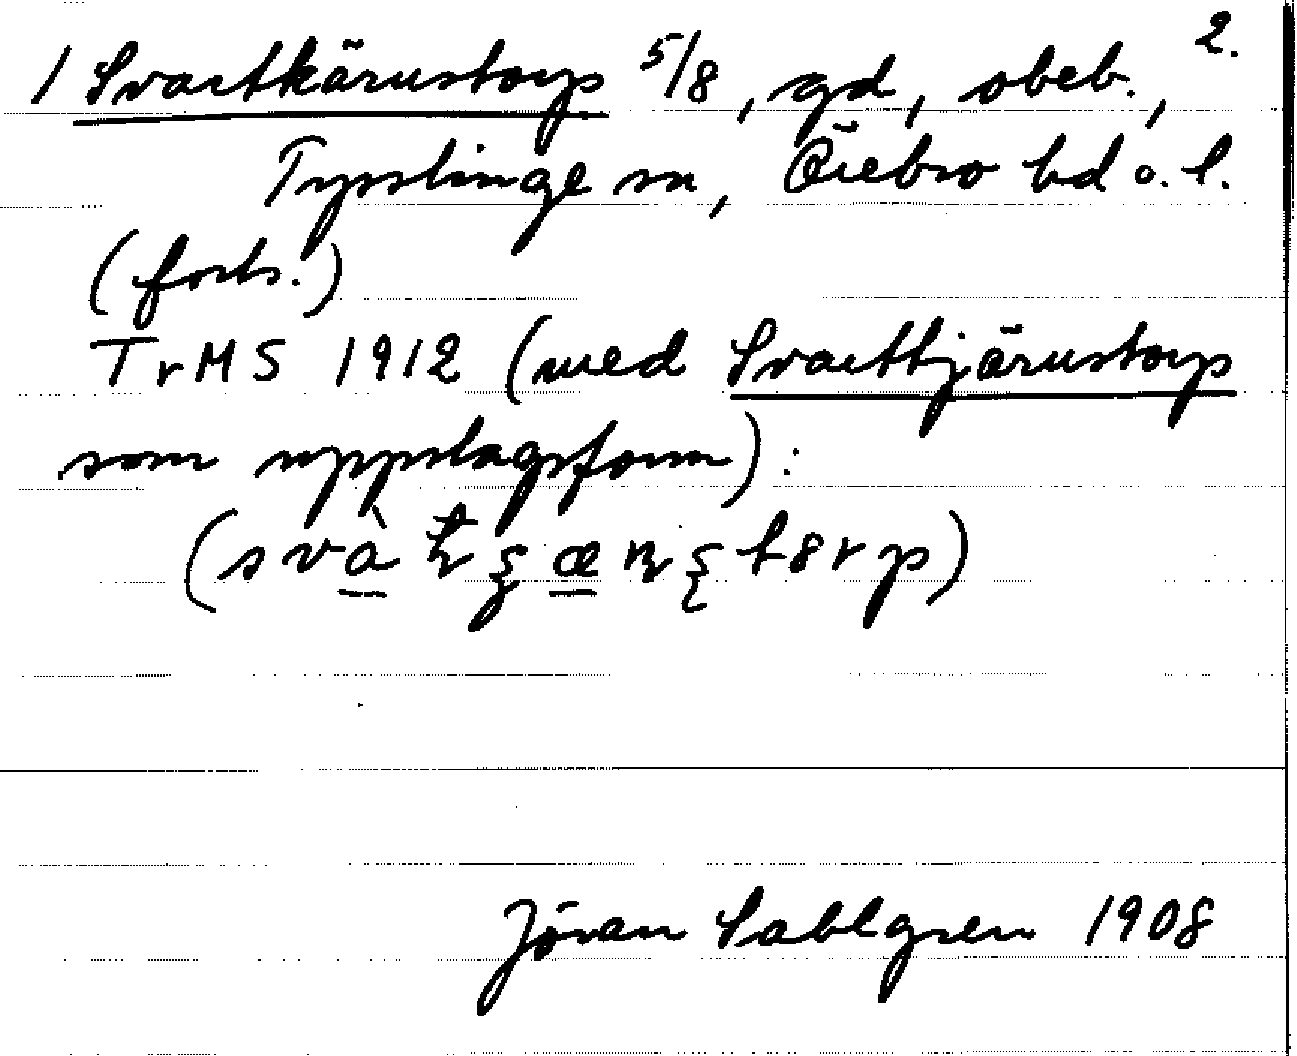 2.
1 Svartkärustorp 5/8, gd, obeb.,
Tysslinge sn, Örebro hd o. l.
(forts.)
TrMS 1912 (med Svarttjärustorp
som uppslagsform):
Jöran Sahlgren 1908